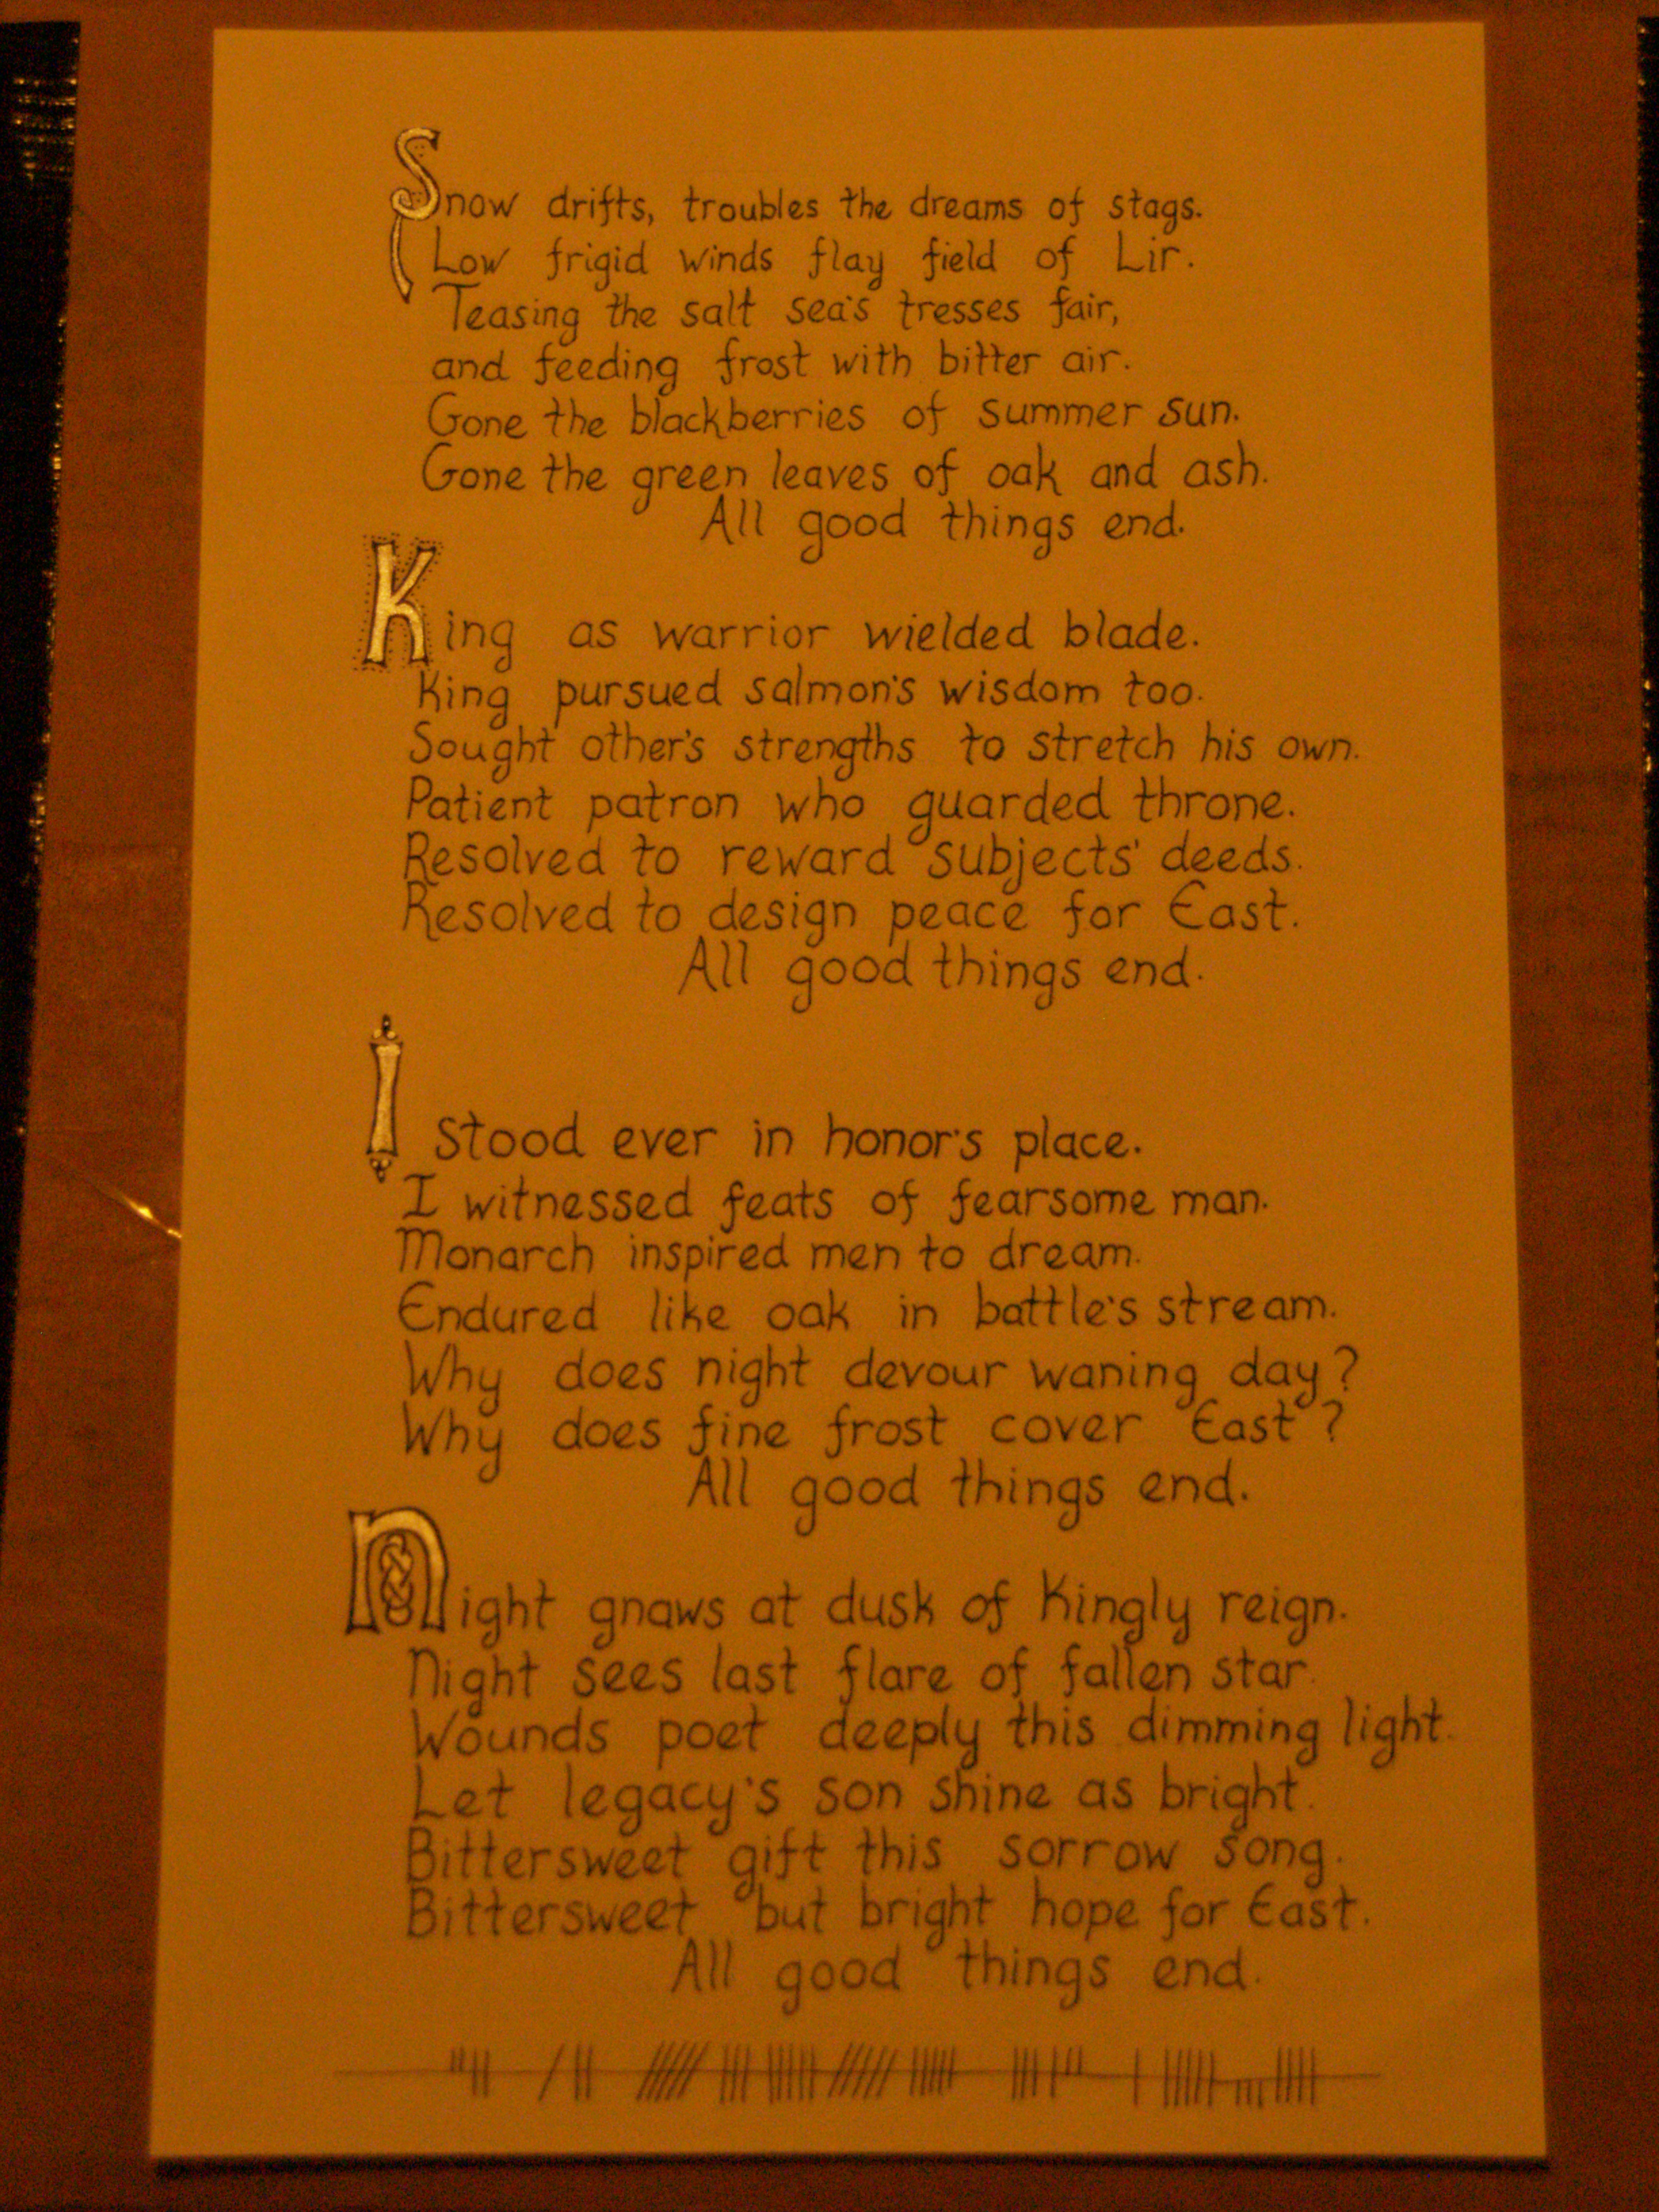 Snow drifts, troubles the dreams of stags.
Low frigid winds flay field of Lir.
Teasing the salt sea's tresses fair,
and feeding frost with bitter air.
Gone the blackberries of summer sun.
Gone the green leaves of oak and ash.
All good things end.
King as warrior wielded blade.
King pursued salmon's wisdom too.
Sought other's strengths to stretch his own.
Patient patron who guarded throne.
Resolved to reward subjects' deeds.
Resolved to design peace for East.
All good things end.
I stood ever in honor's place.
I witnessed feats of fearsome man.
Monarch inspired men to dream.
Endured like oak in battle's stream.
Why does night devour waning day?
Why does fine frost cover East?
All good things end.
Night gnaws at dusk of Kingly reign.
Night sees last flare of fallen star.
Wounds poet deeply this dimming light.
Let legacy's son shine as bright.
Bittersweet gift this sorrow song.
Bittersweet but bright hope for East.
All good things end.